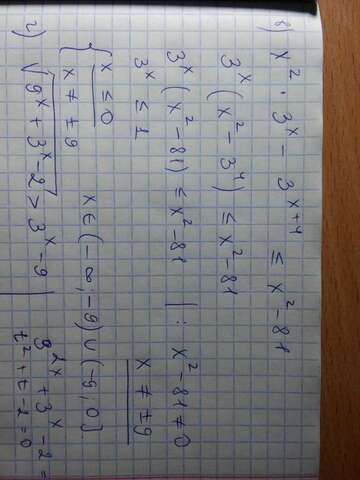 в) x² · 3ˣ - 3ˣ⁺⁴ ≤ x² - 81
3ˣ (x² - 3⁴) ≤ x² - 81
3ˣ (x² - 81) ≤ x² - 81 | : x² - 81 ≠ 0
3ˣ ≤ 1 x ≠ ± 9
{ x ≤ 0
x ≠ ± 9 x ∈ (-∞; -9) ∪ (-9; 0].
г) √(9ˣ + 3ˣ - 2) > 3ˣ - 9 | 9²ˣ + 3ˣ - 2 =
t² + t - 2 = 0